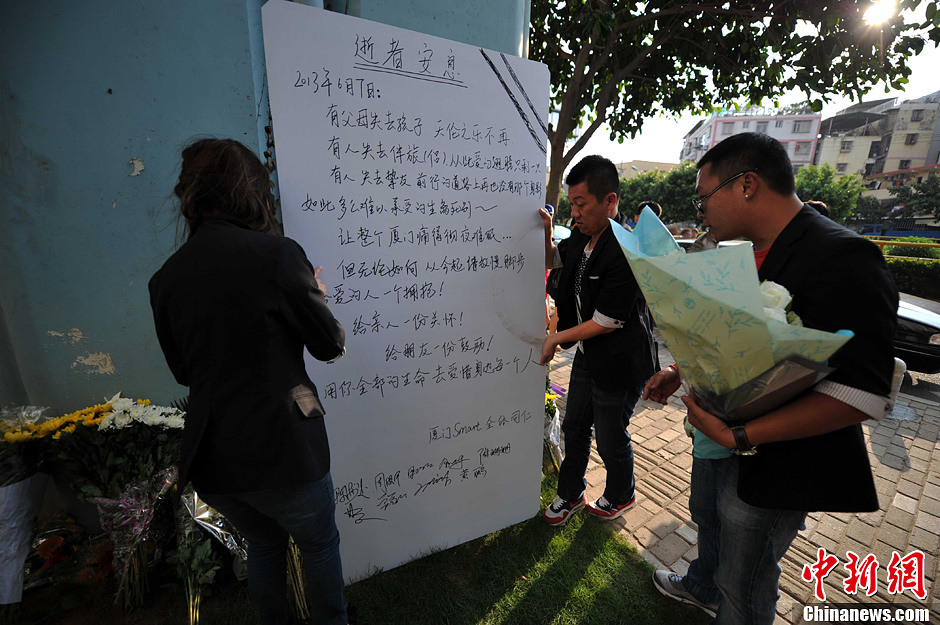 逝者安息
2013年6月7日:
有父母失去孩子 天伦之乐不再
有人失去伴旅(侣)从此爱的翅膀只剩一只
有人失去挚友 前行的道路上再也没有那个身影
如此多么难以承受的生离死别~
让整个厦门痛得彻夜难眠...
但无论如何 从今起 请放慢脚步
爱的人一个拥抱!
给亲人一份关怀!
给朋友一份鼓励!
用你全部的生命 去爱惜身边每一个人
厦门Smart 全体同仁
中新网
ChinaNews.com